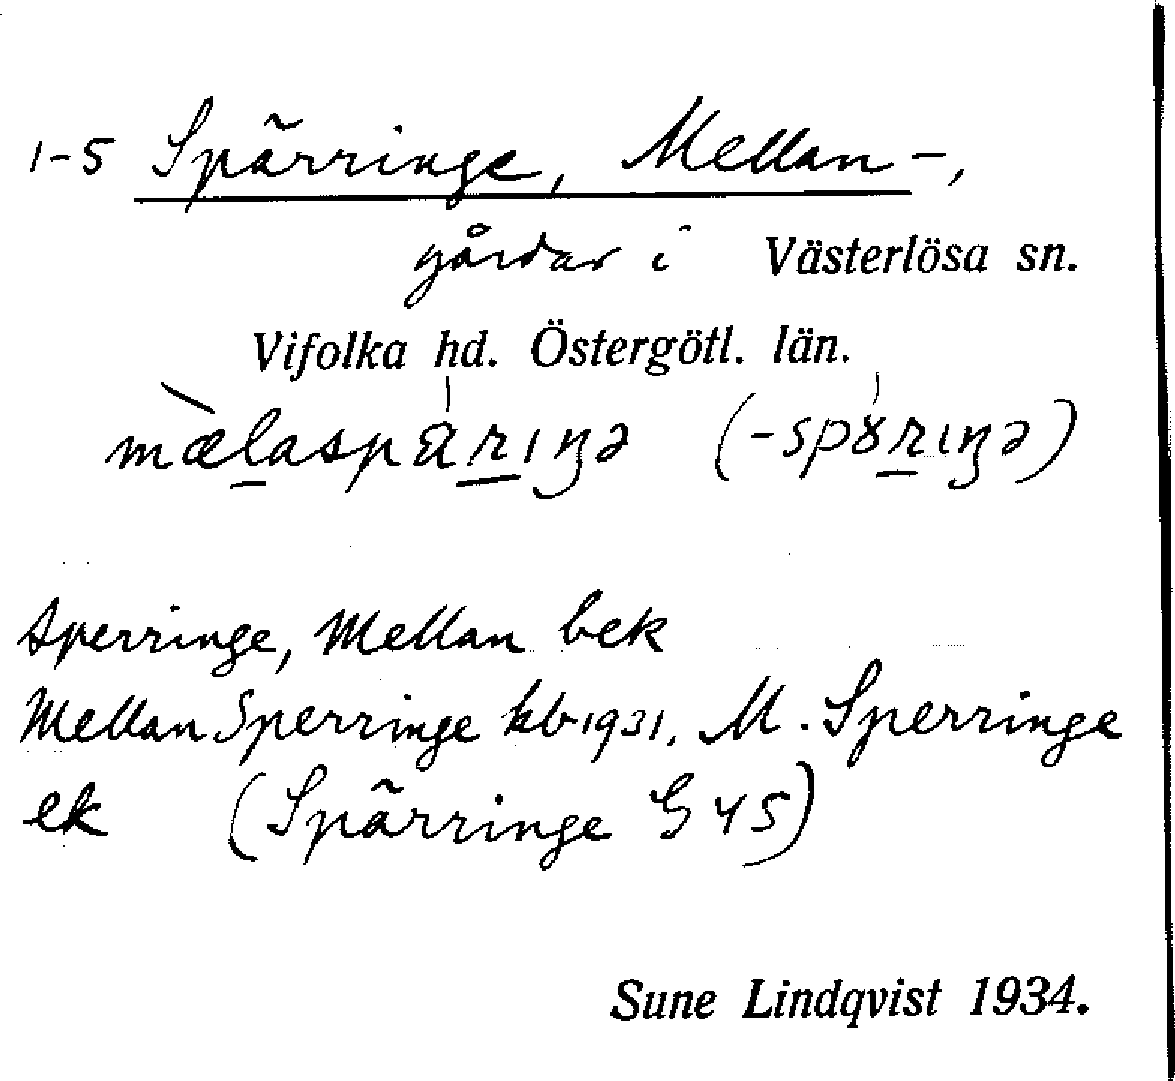 1-5 Spärringe, Mellan-,
gårdar i Västerlösa sn.
Vifolka hd. Östergötl. län.
Sperringe, Mellan bek
Mellan Sperringe kb 1931, M. Sperringe
ek (Spärringe G 45)
Sune Lindqvist 1934.